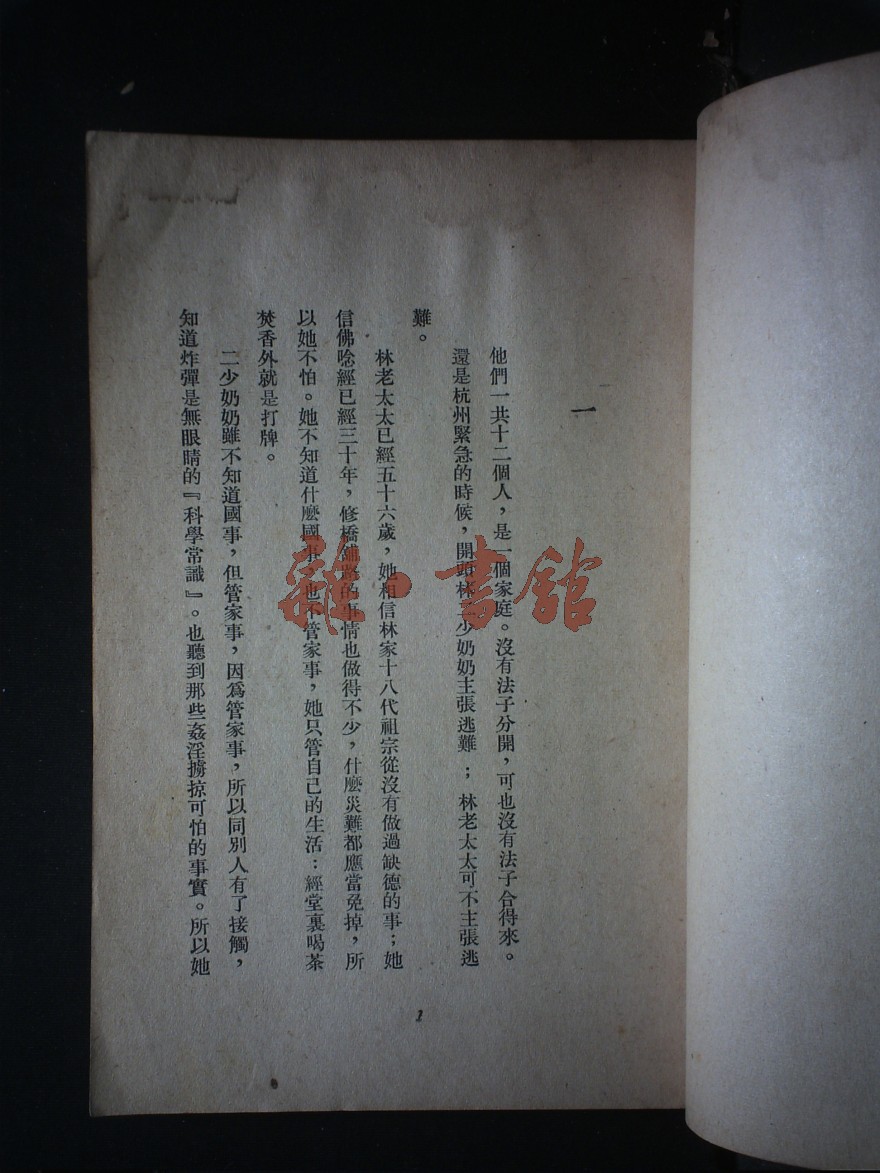 一
他們一共十二個人，是一個家庭。沒有法子分開，可也沒有法子合得來。
還是杭州緊急的時候，開頭林二少奶奶主張逃難；林老太太可不主張逃
難。
林老太太已經五十六歲，她相信林家十八代祖宗從沒有做過缺德的事；她
信佛唸經已經三十年，修橋舖路的事情也做得不少，什麼災難都應當免掉，所
以她不怕。她不知道什麼國事，也不管家事，她只管自己的生活：經堂裏喝茶
焚香外就是打牌。
二少奶奶雖不知道國事，但管家事，因爲管家事，所以同別人有了接觸，
知道炸彈是無眼睛的『科學常識』。也聽到那些姦淫擄掠可怕的事實。所以她
1
雜·書館